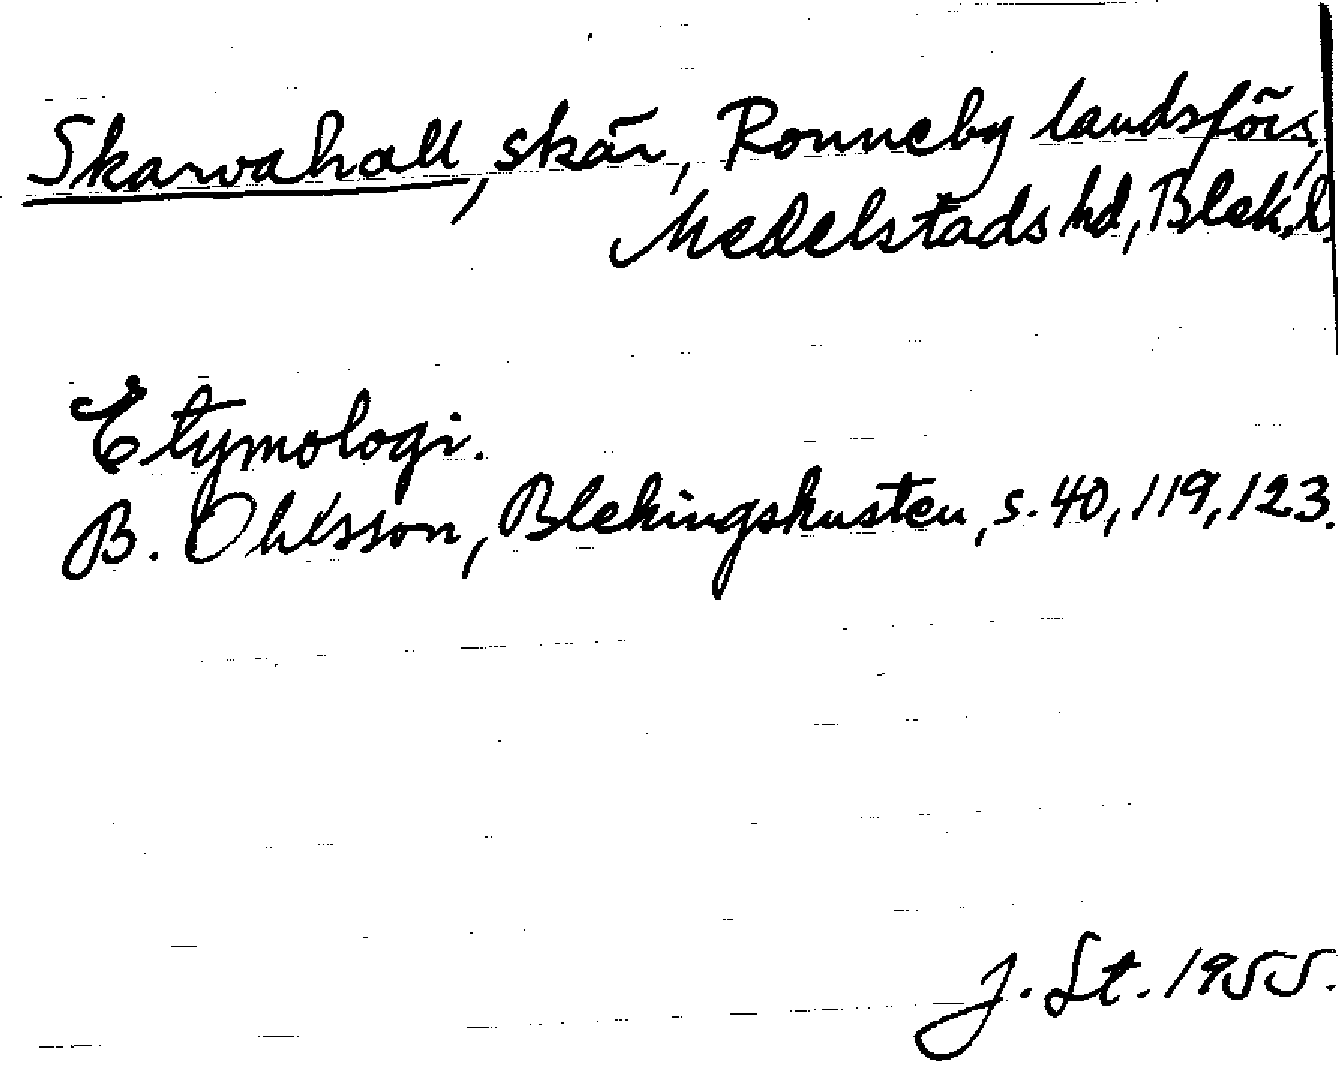 Skarvahall, skär, Ronneby landsförs,
Medelstads hd, Blek.l.
Etymologi.
B. Ohlsson, Blekingskusten, s. 40, 119, 123.
J. St. 1955.